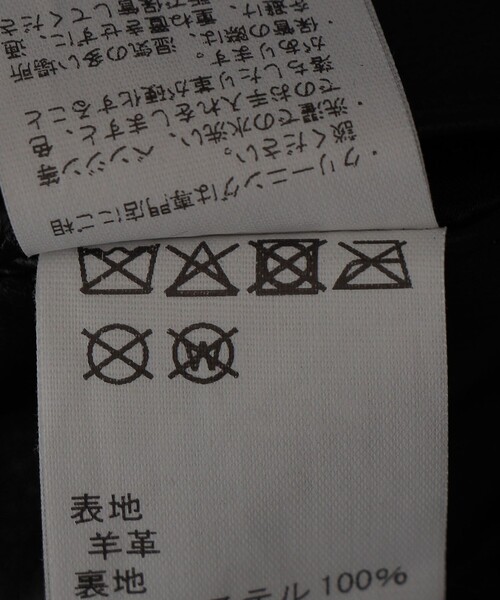 ・クリーニングは専門店にご相
談ください。
・洗濯での水洗い、ベンジン等
でのお手入れをしますと、色
落ちしたり革が硬化すること
があります。
・保管の際は、湿気の多い場所
を避け、重ね置きせずに、通
で保管してくださ
W
表地
羊革
裏地
テル 100%